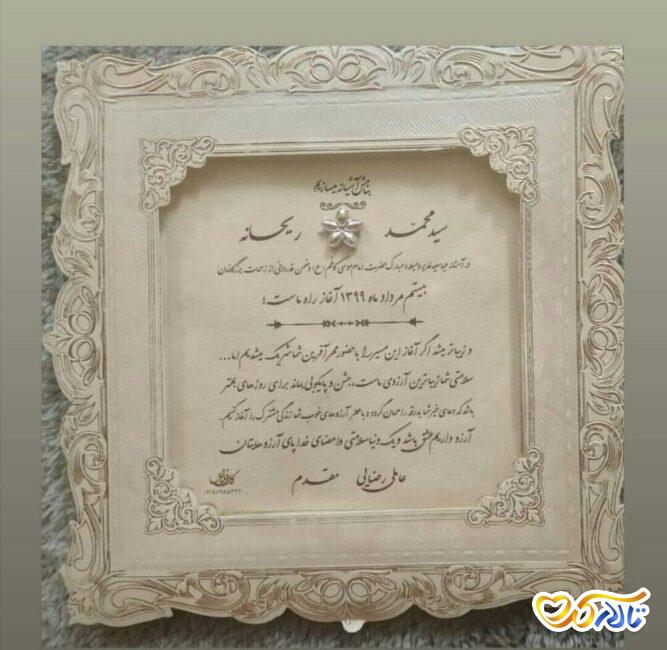 بنامش آشیانه میسازیم
سید محمد ریحانه
در آستانه عید سعید غدیر و میلاد مبارک حضرت امام موسی کاظم (ع) و ضمن قدردانی از زحمات بزرگانمان
بیستم مرداد ماه ۱۳۹۹ آغاز راه ماست؛
و زیباتر میشد اگر آغاز این مسیر را با حضور مهرآفرین شما شریک میشدیم اما...
سلامتی شما زیباترین آرزوی ماست، جشن و پایکوبی بماند برای روزهای بهتر
باشد که دعای خیر شما بدرقه راهمان گردد و با عطر آرزوهای خوب شما زندگی مشترک را آغاز کنیم.
آرزو داریم عشق باشد و یک دنیا سلامتی و امضای خدا پای آرزوهایتان
عاملی رضایی مقدم
تالار گراف